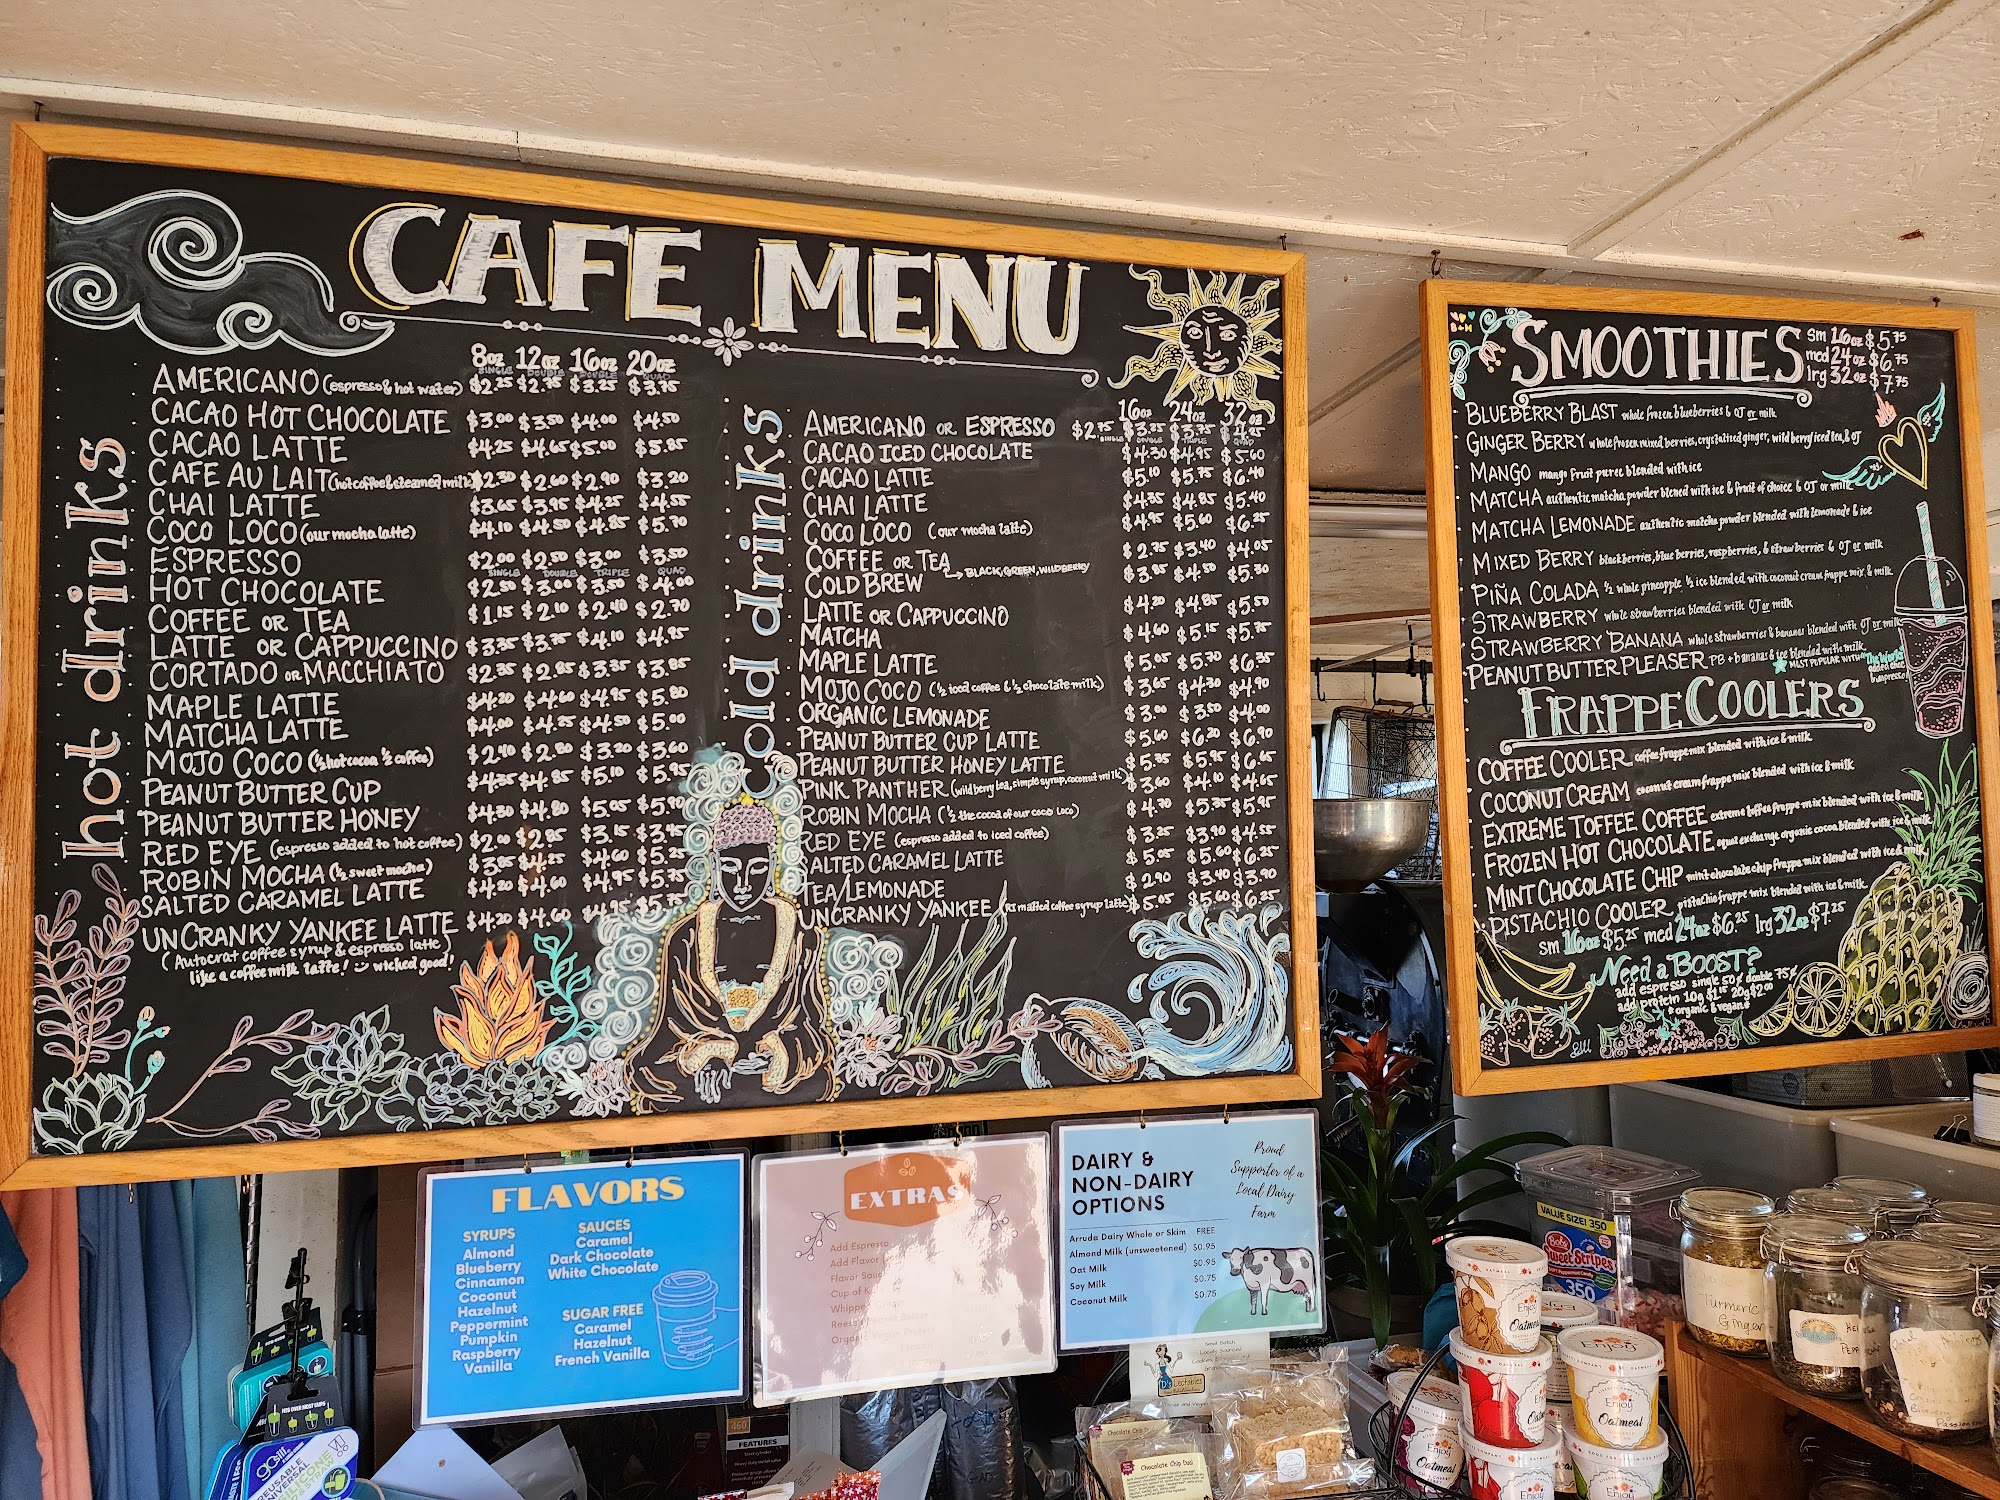 CAFE MENU
hot drinks
8oz 12oz 16oz 20oz
SINGLE DOUBLE DOUBLE QUAD
AMERICANO (espresso & hot water) $2.25 $2.75 $3.25 $3.75
CACAO HOT CHOCOLATE $3.00 $3.50 $4.00 $4.50
CACAO LATTE $4.25 $4.65 $5.00 $5.85
CAFE AU LAIT (hot coffee & steamed milk) $2.30 $2.60 $2.90 $3.20
CHAI LATTE $3.65 $3.95 $4.25 $4.55
COCO LOCO (our mocha latte) $4.10 $4.50 $4.85 $5.70
ESPRESSO $2.00 $2.50 $3.00 $3.50
SINGLE DOUBLE TRIPLE QUAD
HOT CHOCOLATE $2.50 $3.00 $3.50 $4.00
COFFEE OR TEA $1.15 $2.10 $2.40 $2.70
LATTE OR CAPPUCCINO $3.35 $3.75 $4.10 $4.95
CORTADO OR MACCHIATO $2.35 $2.85 $3.35 $3.85
MAPLE LATTE $4.20 $4.60 $4.95 $5.80
MATCHA LATTE $4.00 $4.25 $4.50 $5.00
MOJO COCO (½ hot cocoa ½ coffee) $2.40 $2.80 $3.20 $3.60
PEANUT BUTTER CUP $4.35 $4.85 $5.10 $5.95
PEANUT BUTTER HONEY $4.30 $4.80 $5.05 $5.90
RED EYE (espresso added to hot coffee) $2.00 $2.85 $3.15 $3.45
ROBIN MOCHA (½ sweet mocha) $3.85 $4.25 $4.60 $5.25
SALTED CARAMEL LATTE $4.20 $4.60 $4.95 $5.75
UNCRANKY YANKEE LATTE $4.20 $4.60 $4.95 $5.75
(Autocrat coffee syrup & espresso latte)
like a coffee milk latte! wicked good!
cold drinks
16oz 24oz 32oz
AMERICANO OR ESPRESSO $2.75 $3.25 $3.75 $4.25
SINGLE DOUBLE TRIPLE QUAD
CACAO ICED CHOCOLATE $4.30 $4.95 $5.60
CACAO LATTE $5.10 $5.75 $6.40
CHAI LATTE $4.35 $4.85 $5.40
COCO LOCO (our mocha latte) $4.95 $5.60 $6.25
COFFEE OR TEA $2.75 $3.40 $4.05
BLACK, GREEN, WILDBERRY
COLD BREW $3.85 $4.50 $5.30
LATTE OR CAPPUCCINO $4.20 $4.85 $5.50
MATCHA $4.60 $5.15 $5.75
MAPLE LATTE $5.05 $5.70 $6.35
MOJO COCO (½ iced coffee & ½ chocolate milk) $3.65 $4.30 $4.90
ORGANIC LEMONADE $3.00 $3.50 $4.00
PEANUT BUTTER CUP LATTE $5.60 $6.20 $6.90
PEANUT BUTTER HONEY LATTE $5.35 $5.95 $6.65
PINK PANTHER (wild berry tea, simple syrup, coconut milk) $3.60 $4.10 $4.65
ROBIN MOCHA (½ the cocoa of our coco loco) $4.70 $5.35 $5.95
RED EYE (espresso added to iced coffee) $3.25 $3.90 $4.55
SALTED CARAMEL LATTE $5.05 $5.60 $6.25
TEA/LEMONADE $2.90 $3.40 $3.90
UNCRANKY YANKEE (RI malted coffee syrup latte) $5.05 $5.60 $6.25
SMOOTHIES
sm 16oz $5.75
med 24oz $6.75
lrg 32oz $7.75
BLUEBERRY BLAST whole frozen blueberries & OJ or milk
GINGER BERRY whole frozen mixed berries, crystallized ginger, wild berry iced tea, & OJ
MANGO mango fruit puree blended with ice
MATCHA authentic matcha powder blended with ice & fruit of choice & OJ or milk
MATCHA LEMONADE authentic matcha powder blended with lemonade & ice
MIXED BERRY blackberries, blueberries, raspberries, & strawberries & OJ or milk
PIÑA COLADA ½ whole pineapple ½ ice blended with coconut cream frappe mix & milk
STRAWBERRY whole strawberries blended with OJ or milk
STRAWBERRY BANANA whole strawberries & bananas blended with OJ or milk
PEANUT BUTTER PLEASER PB + bananas & ice blended with milk
MOST POPULAR WITH
FRAPPE COOLERS
COFFEE COOLER coffee frappe mix blended with ice & milk
COCONUT CREAM coconut cream frappe mix blended with ice & milk
EXTREME TOFFEE COFFEE extreme toffee frappe mix blended with ice & milk
FROZEN HOT CHOCOLATE equal exchange organic cocoa blended with ice & milk
MINT CHOCOLATE CHIP mint chocolate chip frappe mix blended with ice & milk
PISTACHIO COOLER pistachio frappe mix blended with ice & milk
sm 16oz $5.25 med 24oz $6.25 lrg 32oz $7.25
Need a BOOST?
add espresso single 50¢ double 75¢
add protein 10g $1.15 20g $2.00
* organic & vegan *
FLAVORS
SYRUPS
Almond
Blueberry
Cinnamon
Coconut
Hazelnut
Peppermint
Pumpkin
Raspberry
Vanilla
SAUCES
Caramel
Dark Chocolate
White Chocolate
SUGAR FREE
Caramel
Hazelnut
French Vanilla
EXTRAS
Add Espresso
Add Flavor
Flavor
Cup of
DAIRY &
NON-DAIRY
OPTIONS
Proud
Supporter of a
Local Dairy
Farm
Arruda Dairy Whole or Skim FREE
Almond Milk (unsweetened) $0.95
Oat Milk $0.95
Soy Milk $0.75
Coconut Milk $0.75
VALUE SIZE! 350
Bob's
Sweet Stripes
350
Turmeric
Ginger
Enjoy
Oatmeal
Enjoy
Oatmeal
Enjoy
Oatmeal
D's Lectables
Chocolate Chip
FEATURES
REUSABLE
UNIVERSAL
SILICONE